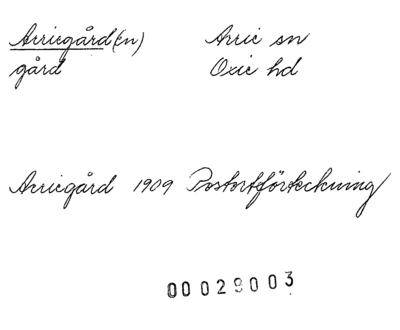 Arriegård(en) Arrie sn
gård Oxie hd
Arriegård 1909 Postortförteckning
00029003